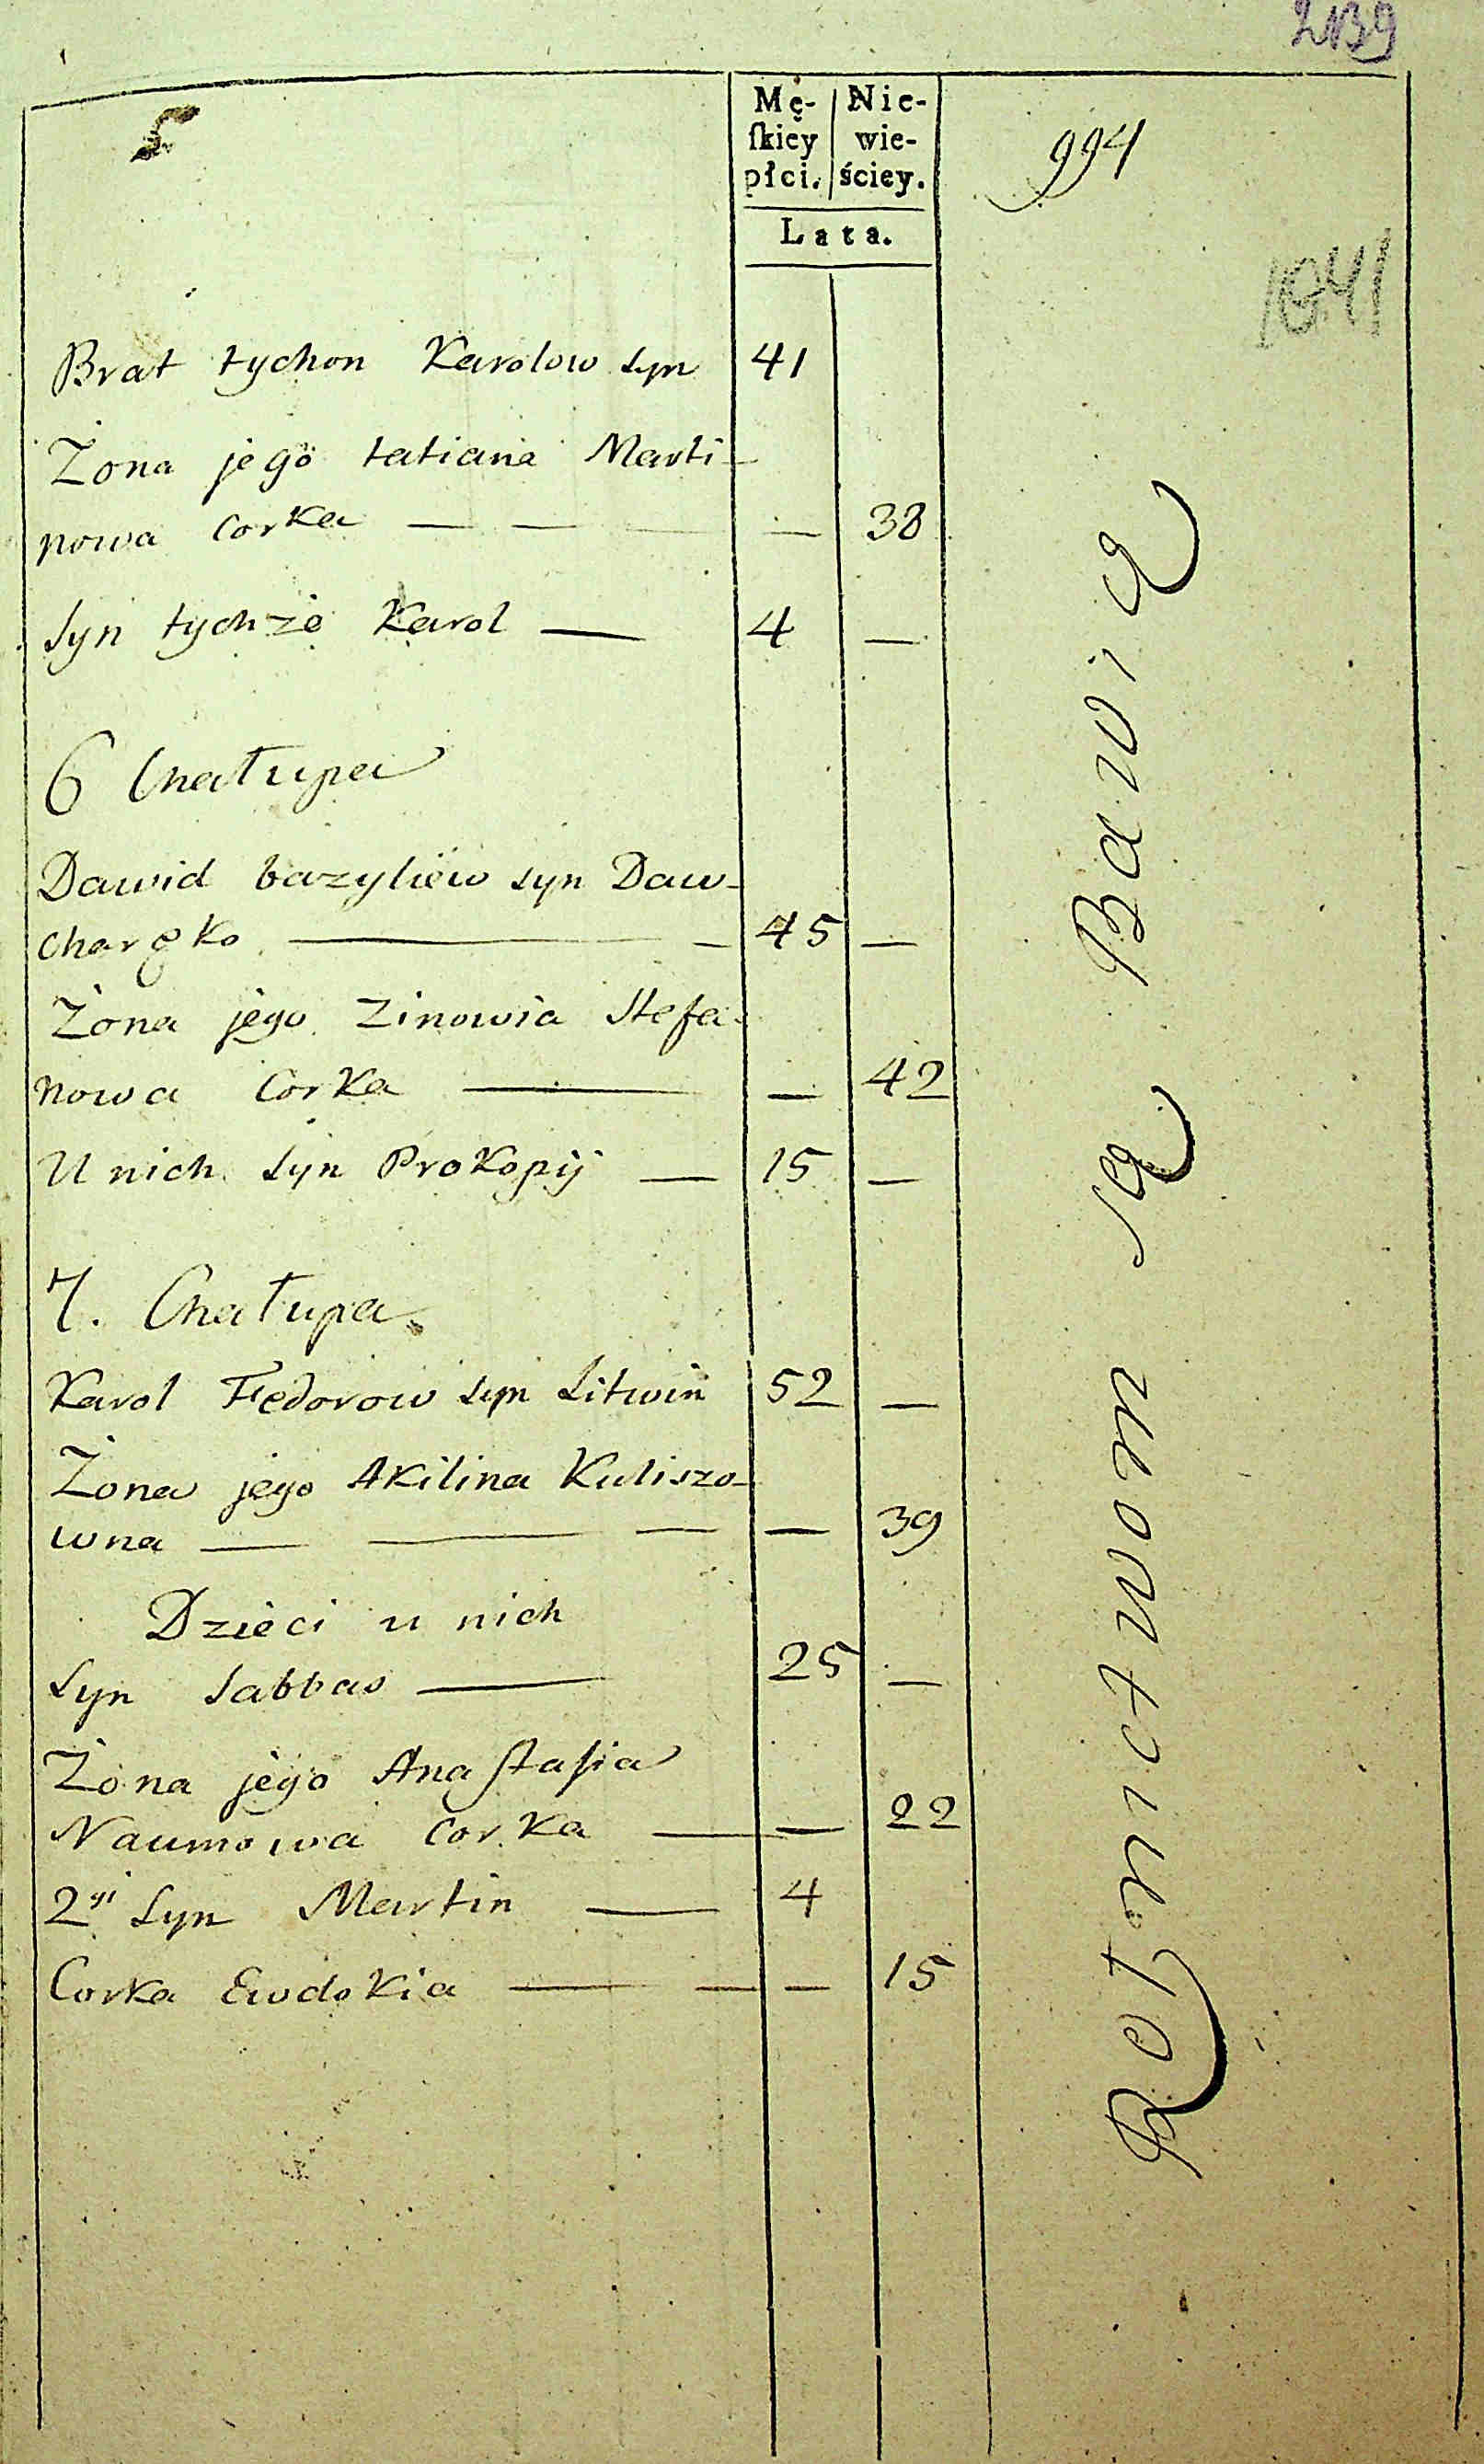 2139
Mę- Nie-
ſkiey wie-
płci. ściey.
Lata.
994
1041
Brat tychon Karolow syn 41
Żona jego tatiana Marti-
nowa Corka — — — — 38
Syn tychże Karol — 4 —
6 Chałupa
Dawid bazyliew syn Daw-
— — 45 —
Żona jego Zinowia Stefa-
nowa Corka — — 42
U nich Syn Prokopij — 15 —
7. Chałupa
Karol Fedorow syn Litwin 52 —
Żona jego Akilina Kuliszo-
wna — — — — 39
Dzieci u nich
Syn Sabbas — 25 —
Żona jego Anaſtaſia
Naumowa Corka — — 22
2gi Syn Martin — 4
Corka Ewdokia — — — 15
Rolnictwem się Bawią